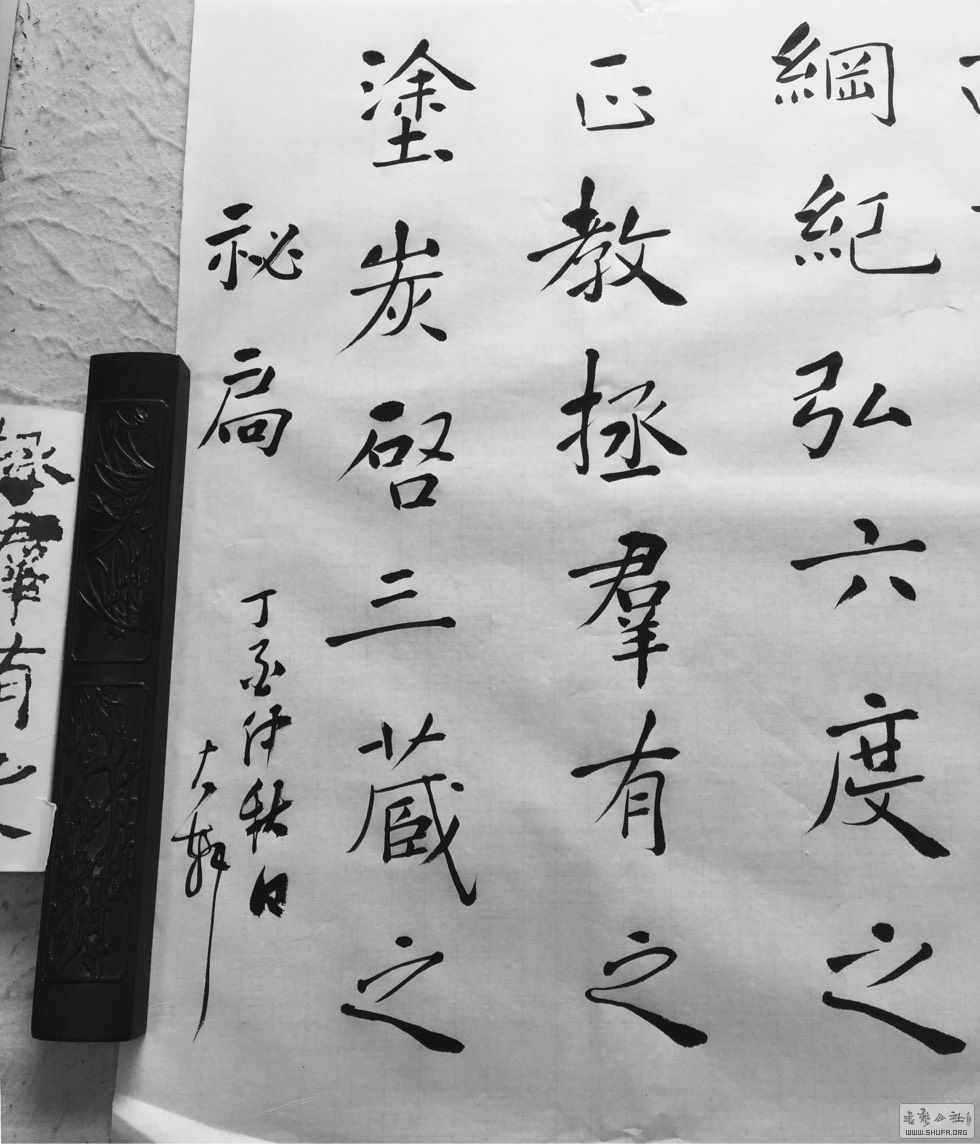 綱紀弘六度之
正教拯羣有之
塗炭啓三藏之
祕扃
丁酉仲秋日
大
羣有之
WWW.SHUFA.ORG